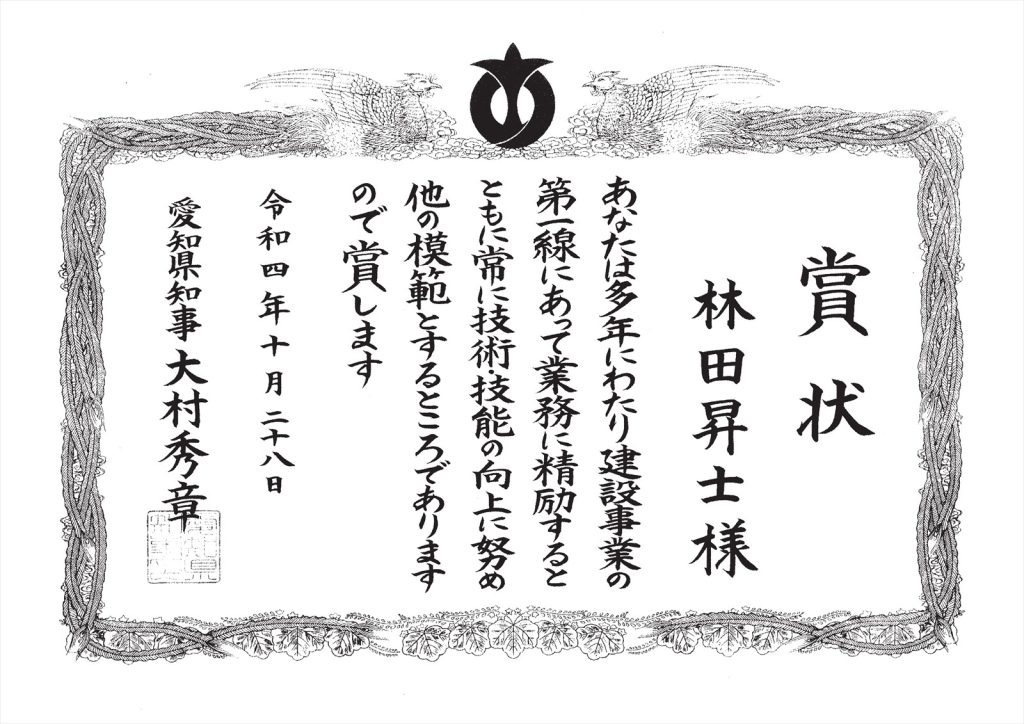 賞状
林田昇士様
あなたは多年にわたり建設事業の
第一線にあって業務に精励すると
ともに常に技術・技能の向上に努め
他の模範とするところであります
ので賞します
令和四年十月二十八日
愛知県知事 大村秀章